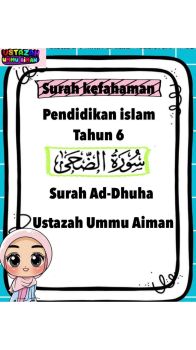 USTAZAH
UMMU AIMAN
Surah kefahaman
Pendidikan islam
Tahun 6
سُورَةُ الضُّحَىٰ
Surah Ad-Dhuha
Ustazah Ummu Aiman